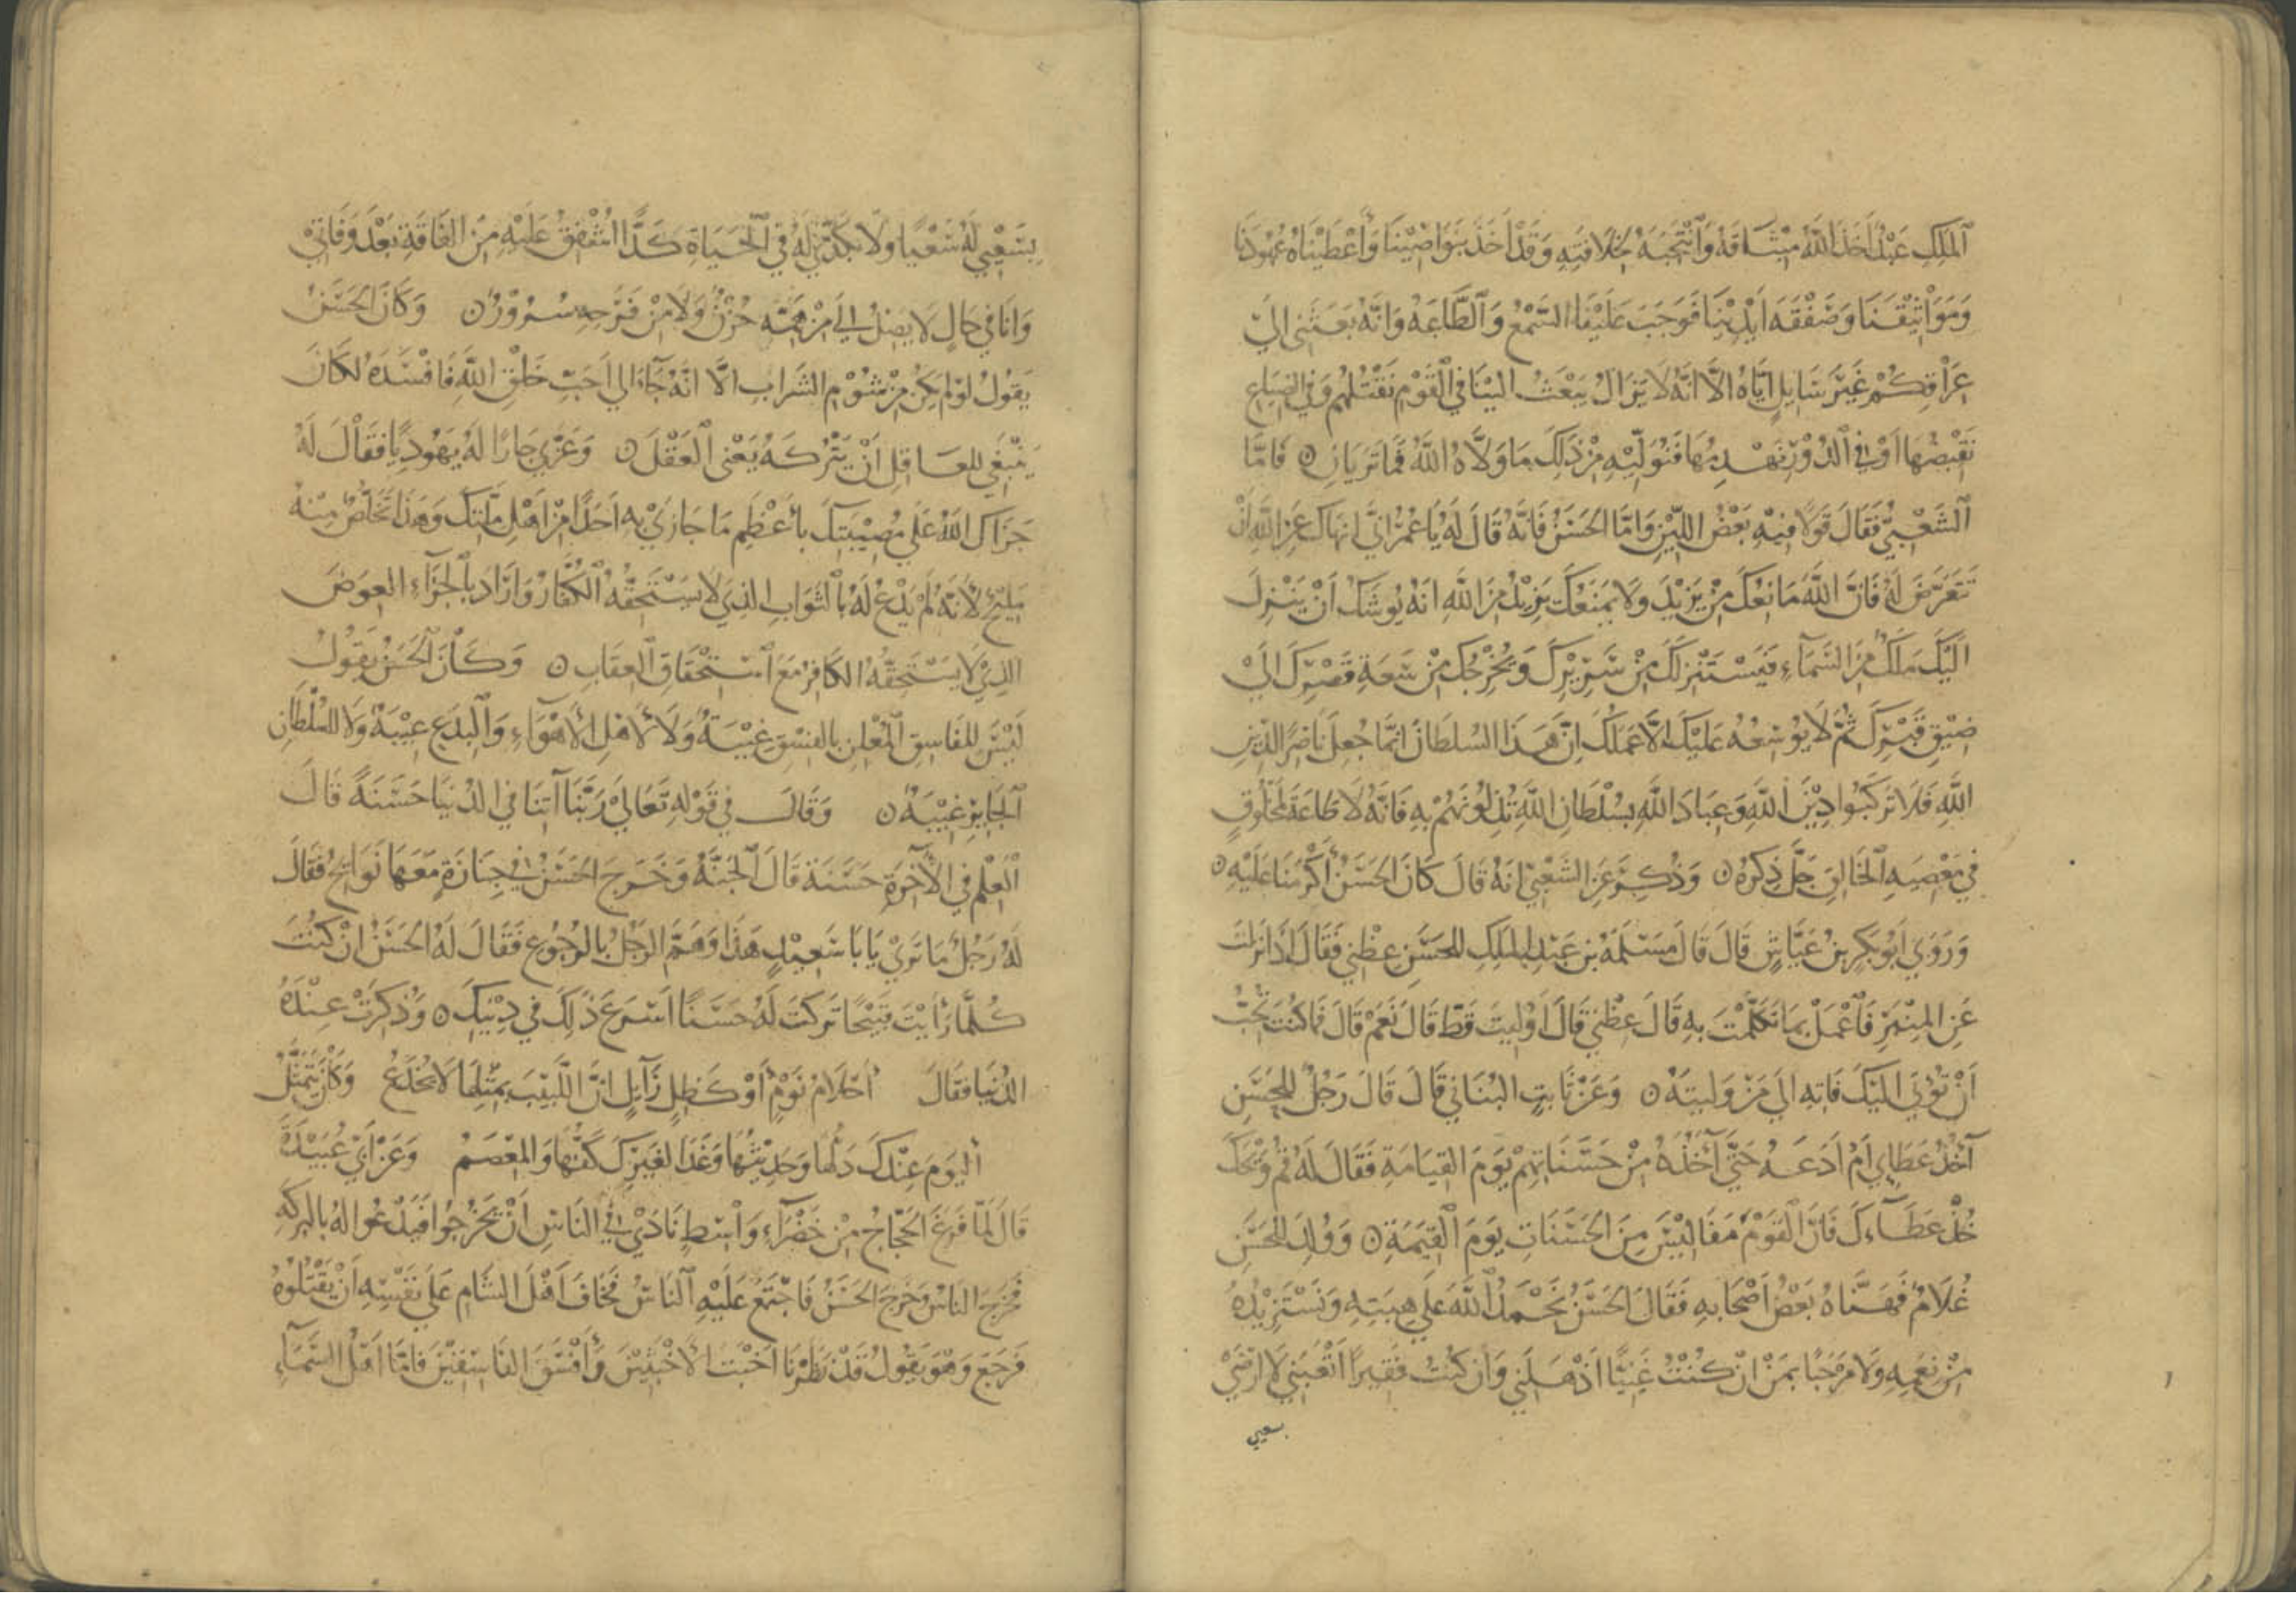 الملك عبد أخذ الله ميثاقه وانتجبه لخلافته وقد أخذ بنواصينا وأعطيناه عهودنا
ومواثيقنا وصفقة أيدينا فوجب علينا السمع والطاعة وانه بعثني الي
عراقكم غير سايل اياه الا انه لا يزال يبعث الينا في القوم نقتلهم وفي الضياع
نقبضها أو في الدور نهدمها فنوليه من ذلك ما ولاه الله فما تريان ن فاما
الشعبي فقال قولا فيه بعض اللين واما الحسن فانه قال له يا عمر اني انهاك عن الله ان
تتعرض له فان الله مانعك من يزيد ولا يمنعك يزيد من الله انه يوشك أن ينزل
اليك ملك من السماء فيستنزلك من سريرك ويخرجك من سعة قصرك الي
ضيق قبرك ثم لا يوسعه عليك الا عملك ان هذا السلطان انما جعل ناصرا لدين
الله فلا تركبوا دين الله وعباد الله بسلطان الله تذلونهم به فانه لا طاعة لمخلوق
في معصية الخالق جل ذكره ن وذكر عن الشعبي انه قال كان الحسن أكرمنا عليه ن
وروي ابو بكر بن عياش قال قال مسلمة بن عبد الملك للحسن عظني فقال اذا نزلت
عن المنبر فاعمل بما تكلمت به قال عظني قال أوليت قط قال نعم قال فما كنت تحب
أن تؤتي اليك فاته الي من وليته ن وعن ثابت البناني قال قال رجل للحسن
آخذ عطاي أم أدعه حتى آخذه من حسناتهم يوم القيامة فقال له قم ويحك
خذ عطاءك فان القوم مفاليس من الحسنات يوم القيمة ن وولد للحسن
غلام فهناه بعض أصحابه فقال الحسن نحمد الله علي هبته ونستزيده
من نعمه ولا مرحبا بمن ان كنت غنيا اذهلني وان كنت فقيرا اتعبني لا ارضي
بسعيي
بسعيي له سعيا ولا بكدي له في الحياة كدا اشفق عليه من الفاقة بعد وفاتي
وانا في حال لا يصل الي من همه حزن ولا من فرحه سرور ن وكان الحسن
يقول لو لم يكن من شؤم الشراب الا انه جاء الي احب خلق الله فافسده لكان
ينبغي للعاقل أن يتركه يعني العقل ن وعزي جارا له يهوديا فقال له
جزاك الله علي مصيبتك بأعظم ما جازي به احدا من اهل ملتك وهذا تخلص منه
مليح لأنه لم يدع له بالثواب الذي لا يستحقه الكفار وأراد بالجزاء العوض
الذي لا يستحقه الكافر مع استحقاق العقاب ن وكان الحسن يقول
ليس للفاسق المعلن بالفسق غيبة ولا لأهل الأهواء والبدع غيبة ولا للسلطان
الجاير غيبة ن وقال في قوله تعالي ربنا آتنا في الدنيا حسنة قال
العلم في الآخرة حسنة قال الجنة وخرج الحسن في جنازة معها نوايح فقال
له رجل ما تري يابا سعيد هذا وهم الرجل بالرجوع فقال له الحسن ان كنت
كلما رأيت قبيحا تركت له حسنا اسرع ذلك في دينك ن وذكرت عنده
الدنيا فقال أحلام نوم أو كظل زايل ان اللبيب بمثلها لا يخدع وكان يتمثل
اليوم عندك دلها وحديثها وغدا لغيرك كفها والمعصم وعن ابي عبيدة
قال لما فرغ الحجاج من خضراء واسط نادي في الناس أن يخرجوا فيدعوا له بالبركة
فخرج الناس وخرج الحسن فاجتمع عليه الناس فخاف أهل الشام علي نفسه أن يقتلوه
فرجع وهو يقول قد نظرنا أخبث الأخبثين وأفسق الفاسقين فاما أهل السماء